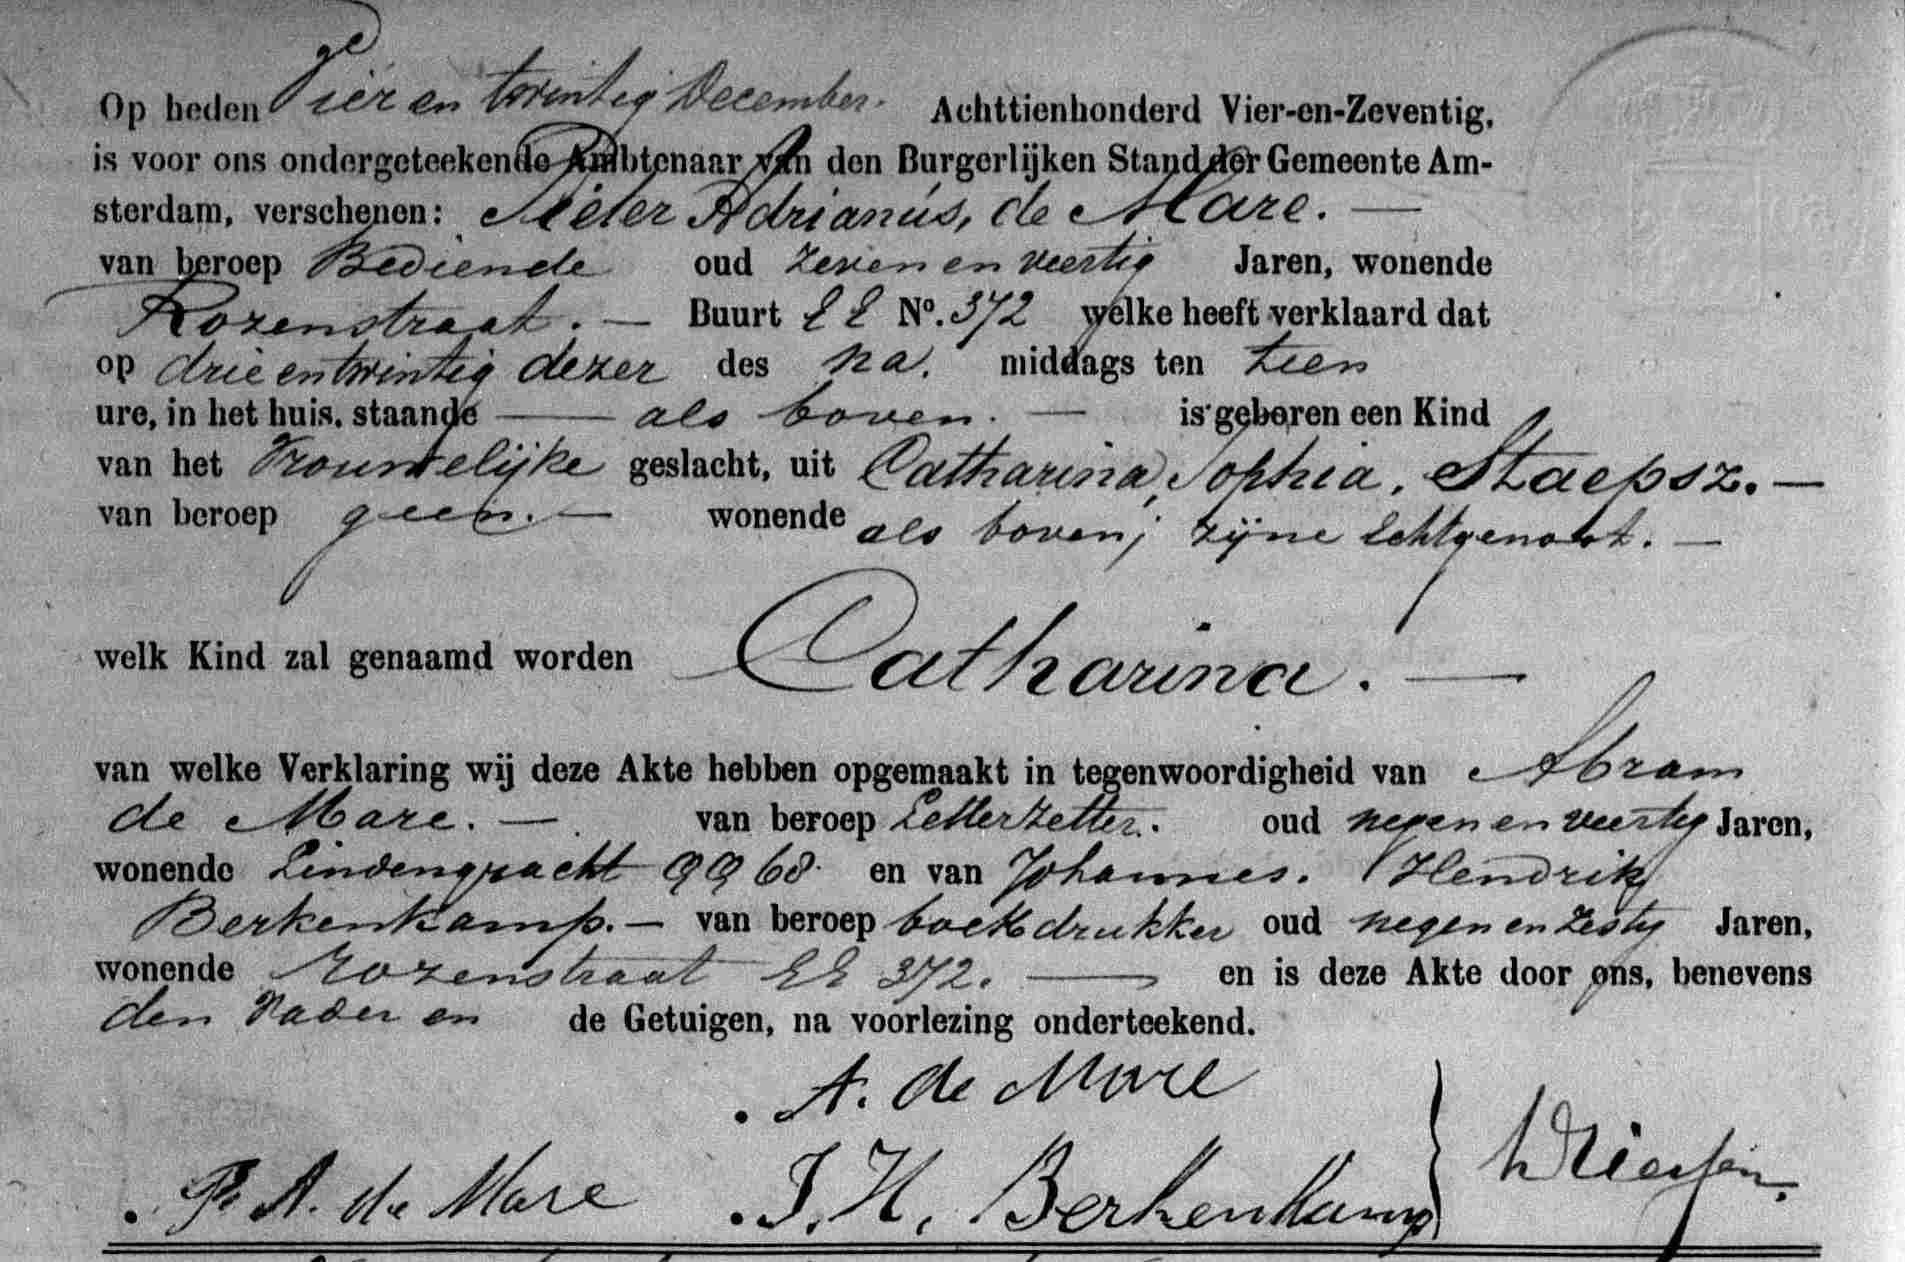 Op heden Vier en twintig December. Achttienhonderd Vier-en-Zeventig,
is voor ons ondergeteekende Ambtenaar van den Burgerlijken Stand der Gemeente Am-
sterdam, verschenen: Pieter Adrianus, de Mare. —
van beroep Bediende oud zeven en veertig Jaren, wonende
Rozenstraat. — Buurt EE No. 372 welke heeft verklaard dat
op drie en twintig dezer des na. middags ten tien
ure, in het huis, staande — als boven. — is geboren een Kind
van het Vrouwelijke geslacht, uit Catharina, Sophia, Staepsz. —
van beroep geen. — wonende als boven; zijne Echtgenoot. —
welk Kind zal genaamd worden Catharina. —
van welke Verklaring wij deze Akte hebben opgemaakt in tegenwoordigheid van Abram
de Mare. — van beroep Letterzetter. oud negen en veertig Jaren,
wonende Lindengracht QQ 68 en van Johannes. Hendrik
Berkenkamp. — van beroep boekdrukker oud negen en zestig Jaren,
wonende rozenstraat EE 372. — en is deze Akte door ons, benevens
den Vader en de Getuigen, na voorlezing onderteekend.
A. de Mare
P. A. de Mare J. H. Berkenkamp